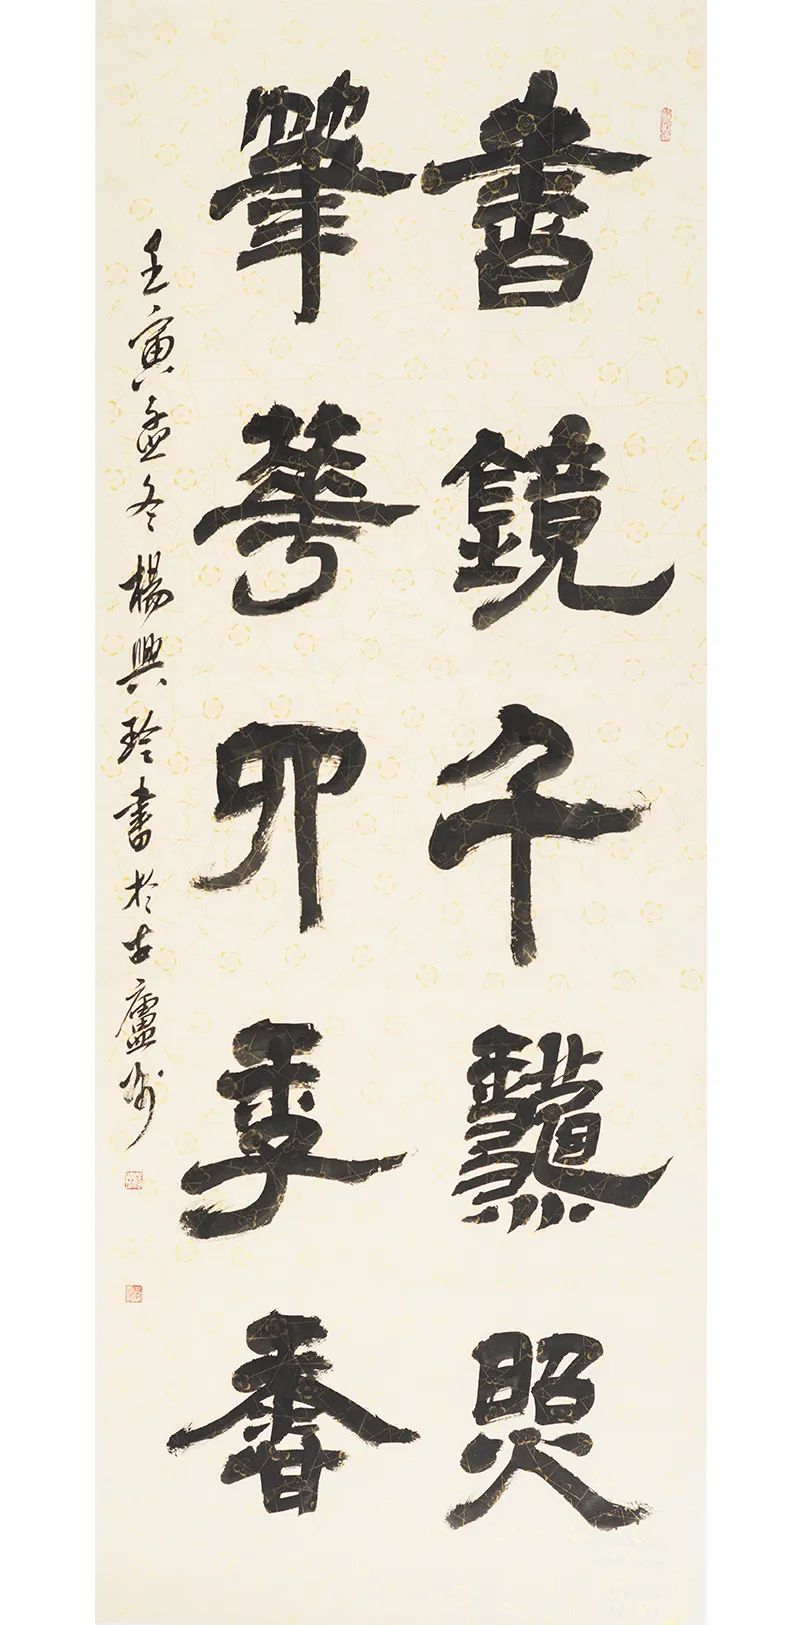 書鏡千龝照
筆華四季香
壬寅孟冬楊興玲書於古廬州